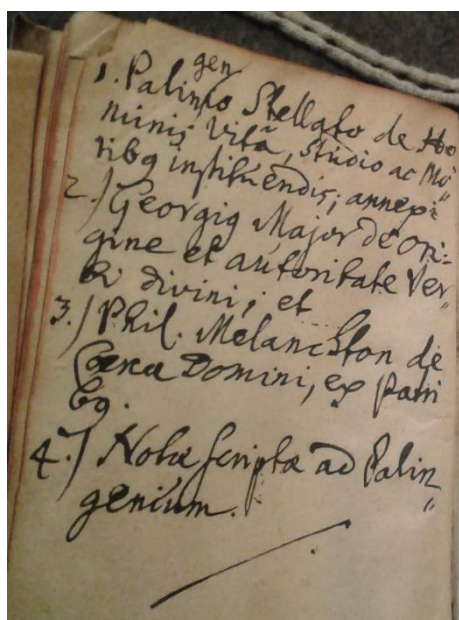 gen
1. Palinio Stellato de Ho=
minis vitâ, studio ac Mo=
ribq instituendis; annexi=
2.) Georgiq Major de ori=
gine et autoritate Ver=
bi divini; et
3.) Phil. Melanchton de
Coena Domini, ex patri
bq.
4.) Notæ scriptæ ad Palin=
genium.